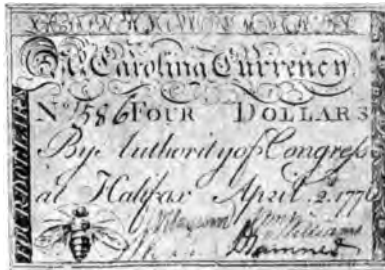 N. Carolina Currency.
No 1586 FOUR DOLLARS
By Authority of Congress
at Halifax April. 2. 1776
Williams